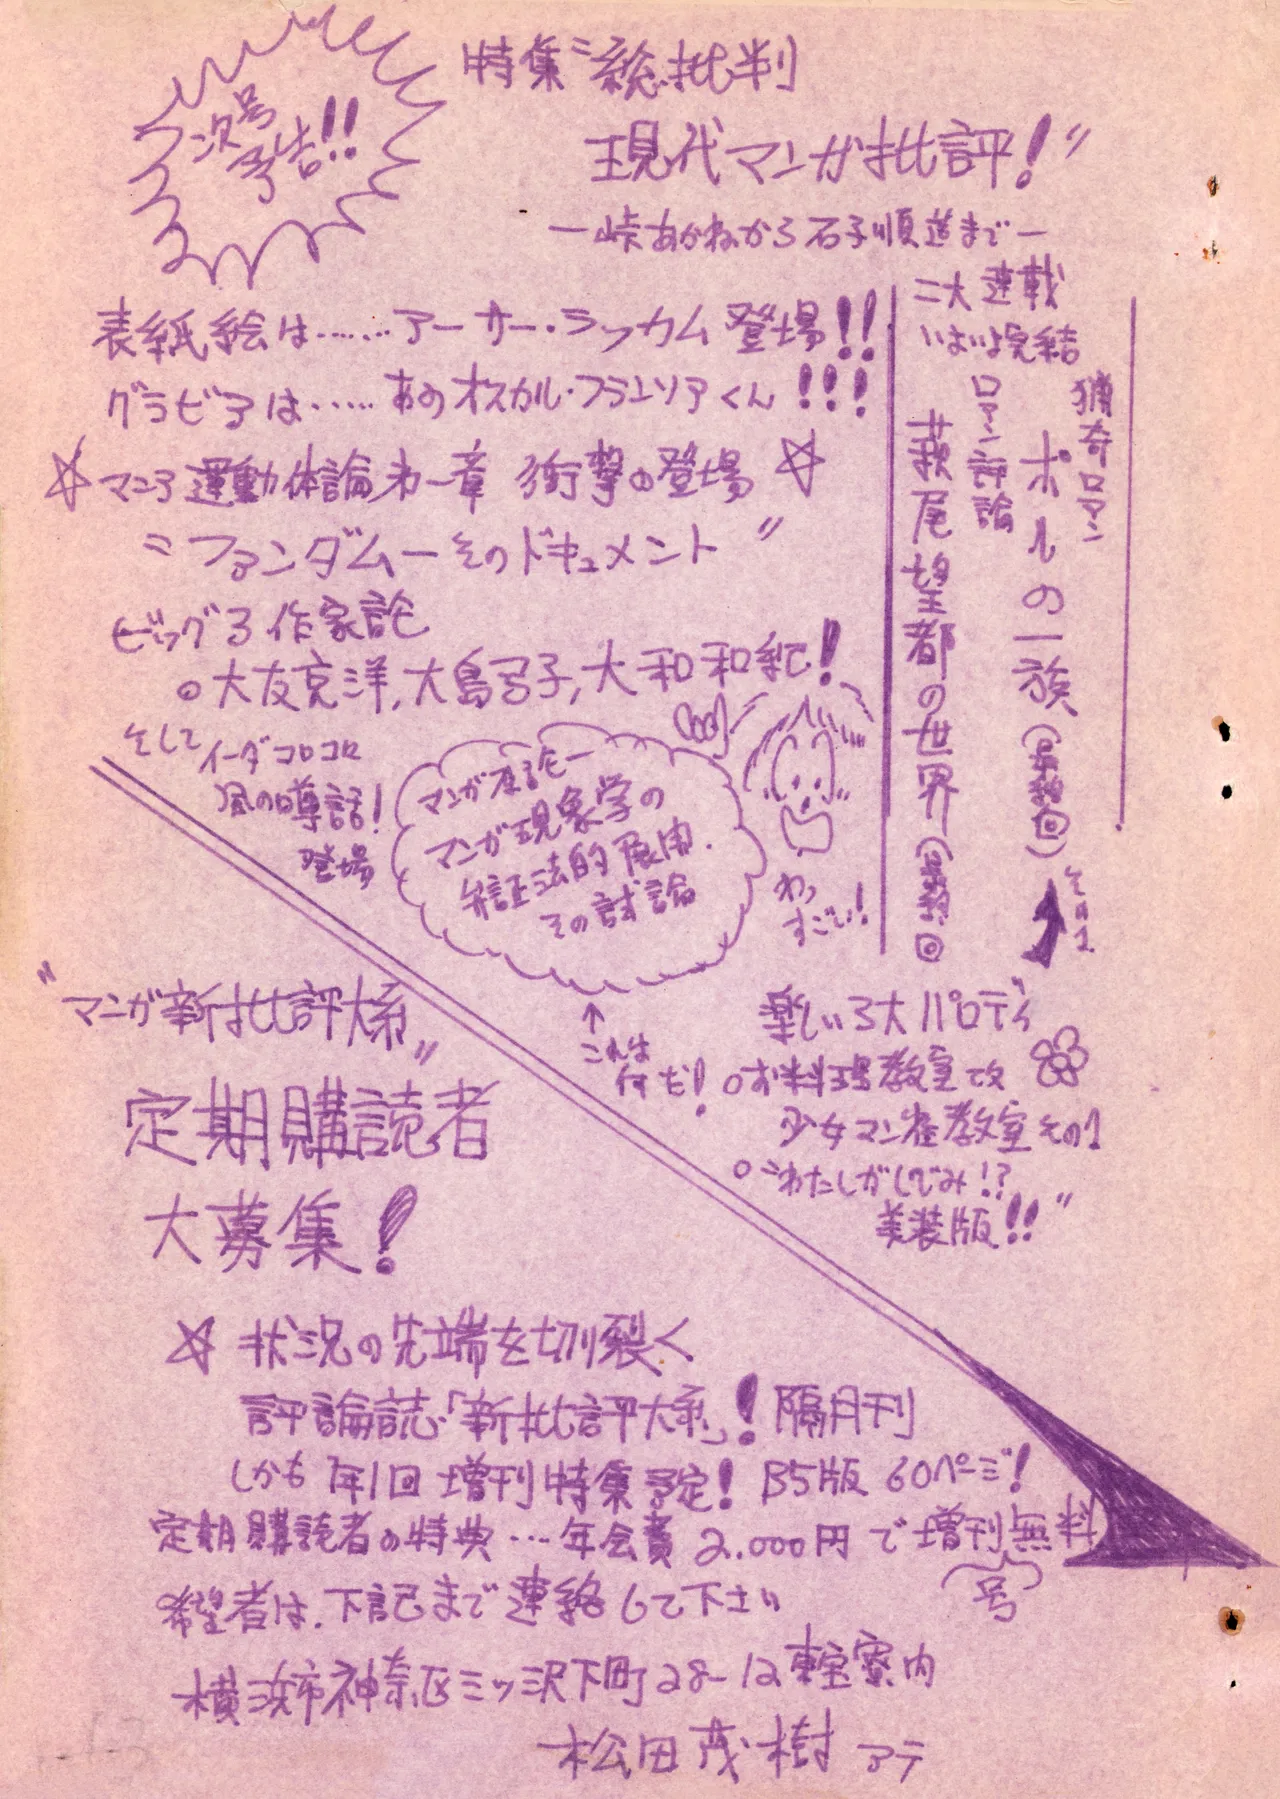 次号
予告!!
特集〝総批判
現代マンガ批評!〟
―峠あかねから石子順造まで―
表紙絵は……アーサー・ラッカム登場!!
グラビアは……あのオスカル・フランソアくん!!!
☆マニア運動体論第一章 衝撃の登場☆
〝ファンダム―そのドキュメント〟
ビッグ3作家論
○大友克洋,大島弓子,大和和紀!
そして イーダコロコロ
風の噂話!
登場
マンガ原論―
マンガ現象学の
弁証法的展開.
その試論
わっ
すごい!
↑
これは
何だ!
二大連載
いよいよ完結
猟奇ロマン
ポルの一族(最終回)
その1
ロマン評論
萩尾望都の世界(最終回)
楽しい3大パロディ
○お料理教室改
少女マン雀教室その1
○〝わたしがしでみ!?
美装版!!〟
〝マンガ新批評大系〟
定期購読者
大募集!
☆状況の先端を切り裂く
評論誌「新批評大系」! 隔月刊
しかも年1回増刊特集予定! B5版 60ページ!
定期購読者の特典…年会費2.000円で増刊号無料
希望者は.下記まで連絡して下さい
横浜市神奈区ミッ沢下町28-12東宝寮内
松田茂樹アテ